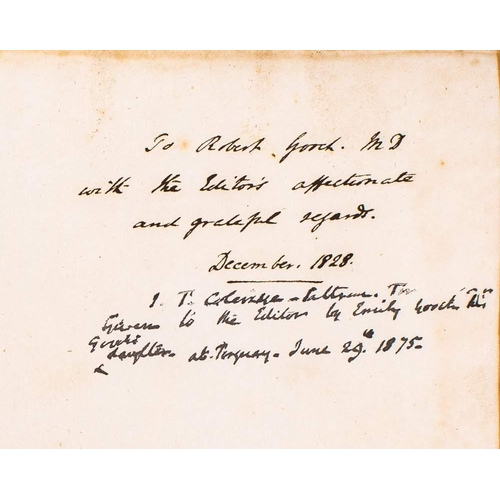 To Robert Gooch. MD
with the Editor's affectionate
and grateful regards.
December. 1828.
J. T. Coleridge
Given to the Editor by Emily Gooch his
daughter at Torquay. June 29th 1875.